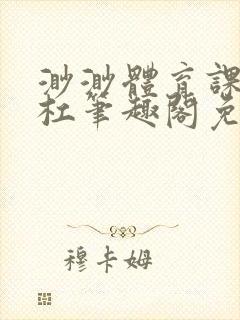 渺渺體育課
杜筆趣閣免
穆卡姆